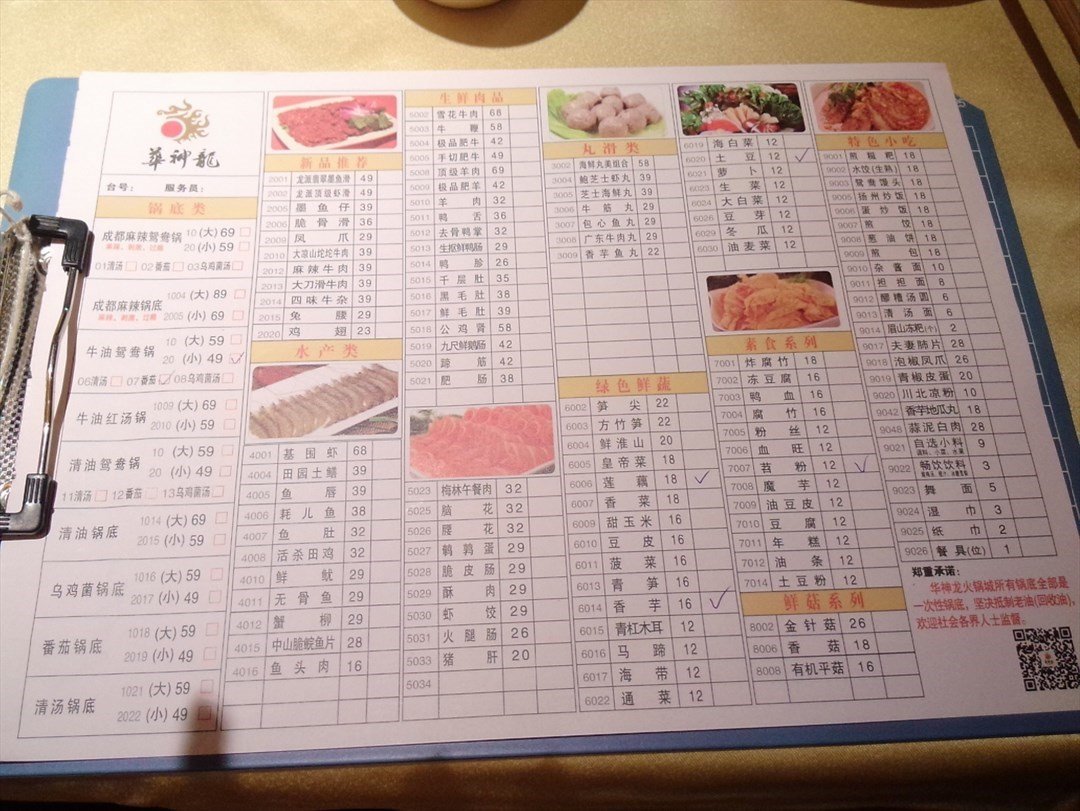 華神龍
台号： 服务员：
锅底类
成都麻辣鸳鸯锅 10 (大) 69
麻辣、刺激、过瘾 20 (小) 59
01清汤 02番茄 03乌鸡菌汤
成都麻辣锅底 1004 (大) 89
麻辣、刺激、过瘾 2005 (小) 69
牛油鸳鸯锅 10 (大) 59
20 (小) 49
06清汤 07番茄 08乌鸡菌汤
牛油红汤锅 1009 (大) 69
2010 (小) 59
清油鸳鸯锅 10 (大) 59
20 (小) 49
11清汤 12番茄 13乌鸡菌汤
清油锅底 1014 (大) 69
2015 (小) 59
乌鸡菌锅底 1016 (大) 59
2017 (小) 49
番茄锅底 1018 (大) 59
2019 (小) 49
清汤锅底 1021 (大) 59
2022 (小) 49
新品推荐
2001 龙派翡翠墨鱼滑 49
2002 龙派顶级虾滑 49
2005 墨鱼仔 39
2006 脆骨滑 36
2009 凤爪 29
2010 大凉山坨坨牛肉 39
2012 麻辣牛肉 39
2013 大刀滑牛肉 39
2014 四味牛杂 39
2015 兔腰 29
2020 鸡翅 23
水产类
4001 基围虾 68
4004 田园土鳝 39
4005 鱼唇 39
4006 耗儿鱼 38
4007 鱼肚 32
4008 活杀田鸡 32
4010 鲜鱿 29
4011 无骨鱼 29
4012 蟹柳 29
4015 中山脆鲩鱼片 28
4016 鱼头肉 16
生鲜肉品
5002 雪花牛肉 68
5003 牛鞭 58
5004 极品肥牛 42
5005 手切肥牛 49
5008 顶级羊肉 69
5009 极品肥羊 42
5010 羊肉 32
5011 鸭舌 36
5012 去骨鸭掌 32
5013 生抠鲜鸭肠 29
5014 鸭胗 26
5015 千层肚 35
5016 黑毛肚 38
5017 鲜毛肚 39
5018 公鸡肾 58
5019 九尺鲜鹅肠 42
5020 蹄筋 42
5021 肥肠 38
5023 梅林午餐肉 32
5025 脑花 32
5026 腰花 32
5027 鹌鹑蛋 29
5028 脆皮肠 29
5029 酥肉 29
5030 虾饺 29
5031 火腿肠 26
5033 猪肝 20
5034
丸滑类
3002 海鲜丸美组合 58
3004 鲍芝士虾丸 39
3005 芝士海鲜丸 39
3006 牛筋丸 29
3007 包心鱼丸 29
3008 广东牛肉丸 29
3009 香芋鱼丸 22
绿色鲜蔬
6002 笋尖 22
6003 方竹笋 22
6004 鲜淮山 20
6005 皇帝菜 18
6006 莲藕 18
6007 香菜 18
6009 甜玉米 16
6010 豆皮 16
6011 菠菜 16
6013 青笋 16
6014 香芋 16
6015 青杠木耳 12
6016 马蹄 12
6017 海带 12
6022 通菜 12
6019 海白菜 12
6020 土豆 12
6021 萝卜 12
6023 生菜 12
6024 大白菜 12
6026 豆芽 12
6029 冬瓜 12
6030 油麦菜 12
素食系列
7001 炸腐竹 18
7002 冻豆腐 16
7003 鸭血 16
7004 腐竹 16
7005 粉丝 12
7006 血旺 12
7007 苕粉 12
7008 魔芋 12
7009 油豆皮 12
7010 豆腐 12
7011 年糕 12
7012 油条 12
7014 土豆粉 12
鲜菇系列
8002 金针菇 26
8006 香菇 18
8008 有机平菇 16
特色小吃
9001 煎糍粑 18
9002 水饺(生熟) 18
9003 鸳鸯馒头 18
9005 扬州炒饭 18
9006 蛋炒饭 18
9007 煎饺 18
9008 葱油饼 18
9009 煎包 18
9010 杂酱面 10
9011 担担面 8
9012 醪糟汤圆 6
9013 清汤面 6
9014 眉山冻粑(个) 2
9017 夫妻肺片 28
9018 泡椒凤爪 26
9019 青椒皮蛋 20
9020 川北凉粉 10
9042 香芋地瓜丸 18
9048 蒜泥白肉 28
9021 自选小料 9
9022 畅饮饮料 3
9023 舞面 5
9024 湿巾 3
9025 纸巾 2
9026 餐具(位) 1
郑重承诺：
华神龙火锅城所有锅底全部是
一次性锅底，坚决抵制老油(回收油)，
欢迎社会各界人士监督。